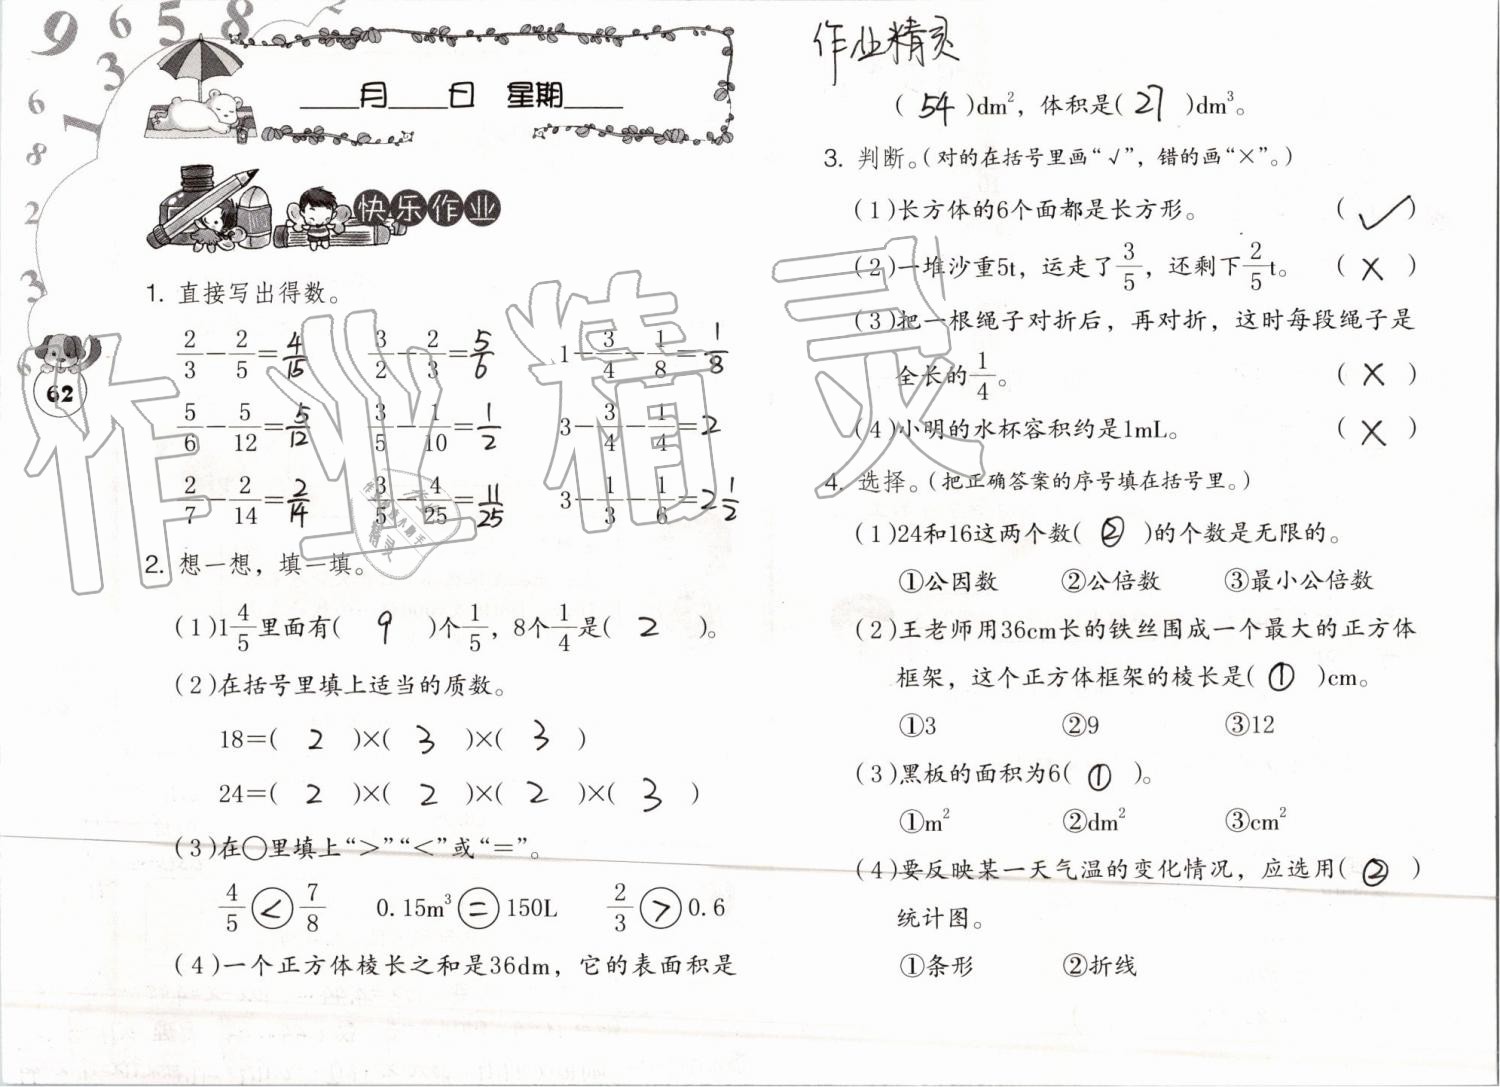 作业精灵
____月____日 星期____
快乐作业
1. 直接写出得数。
2/3−2/5=4/15 3/2−2/3=5/6 1−3/4−1/8=1/8
5/6−5/12=5/12 3/5−1/10=1/2 3−3/4−1/4=2
2/7−2/14=2/14 3/5−4/25=11/25 3−1/3−1/6=2 1/2
62
2. 想一想，填一填。
(1)1 4/5里面有( 9 )个1/5，8个1/4是( 2 )。
(2)在括号里填上适当的质数。
18=( 2 )×( 3 )×( 3 )
24=( 2 )×( 2 )×( 2 )×( 3 )
(3)在○里填上“>”“<”或“=”。
4/5 < 7/8 0.15m³ = 150L 2/3 > 0.6
(4)一个正方体棱长之和是36dm，它的表面积是
( 54 )dm²，体积是( 27 )dm³。
3. 判断。(对的在括号里画“√”，错的画“×”。)
(1)长方体的6个面都是长方形。 ( ✓ )
(2)一堆沙重5t，运走了3/5，还剩下2/5t。 ( X )
(3)把一根绳子对折后，再对折，这时每段绳子是
全长的1/4。 ( X )
(4)小明的水杯容积约是1mL。 ( X )
4. 选择。(把正确答案的序号填在括号里。)
(1)24和16这两个数( ② )的个数是无限的。
①公因数 ②公倍数 ③最小公倍数
(2)王老师用36cm长的铁丝围成一个最大的正方体
框架，这个正方体框架的棱长是( ① )cm。
①3 ②9 ③12
(3)黑板的面积为6( ① )。
①m² ②dm² ③cm²
(4)要反映某一天气温的变化情况，应选用( ② )
统计图。
①条形 ②折线
作业精灵